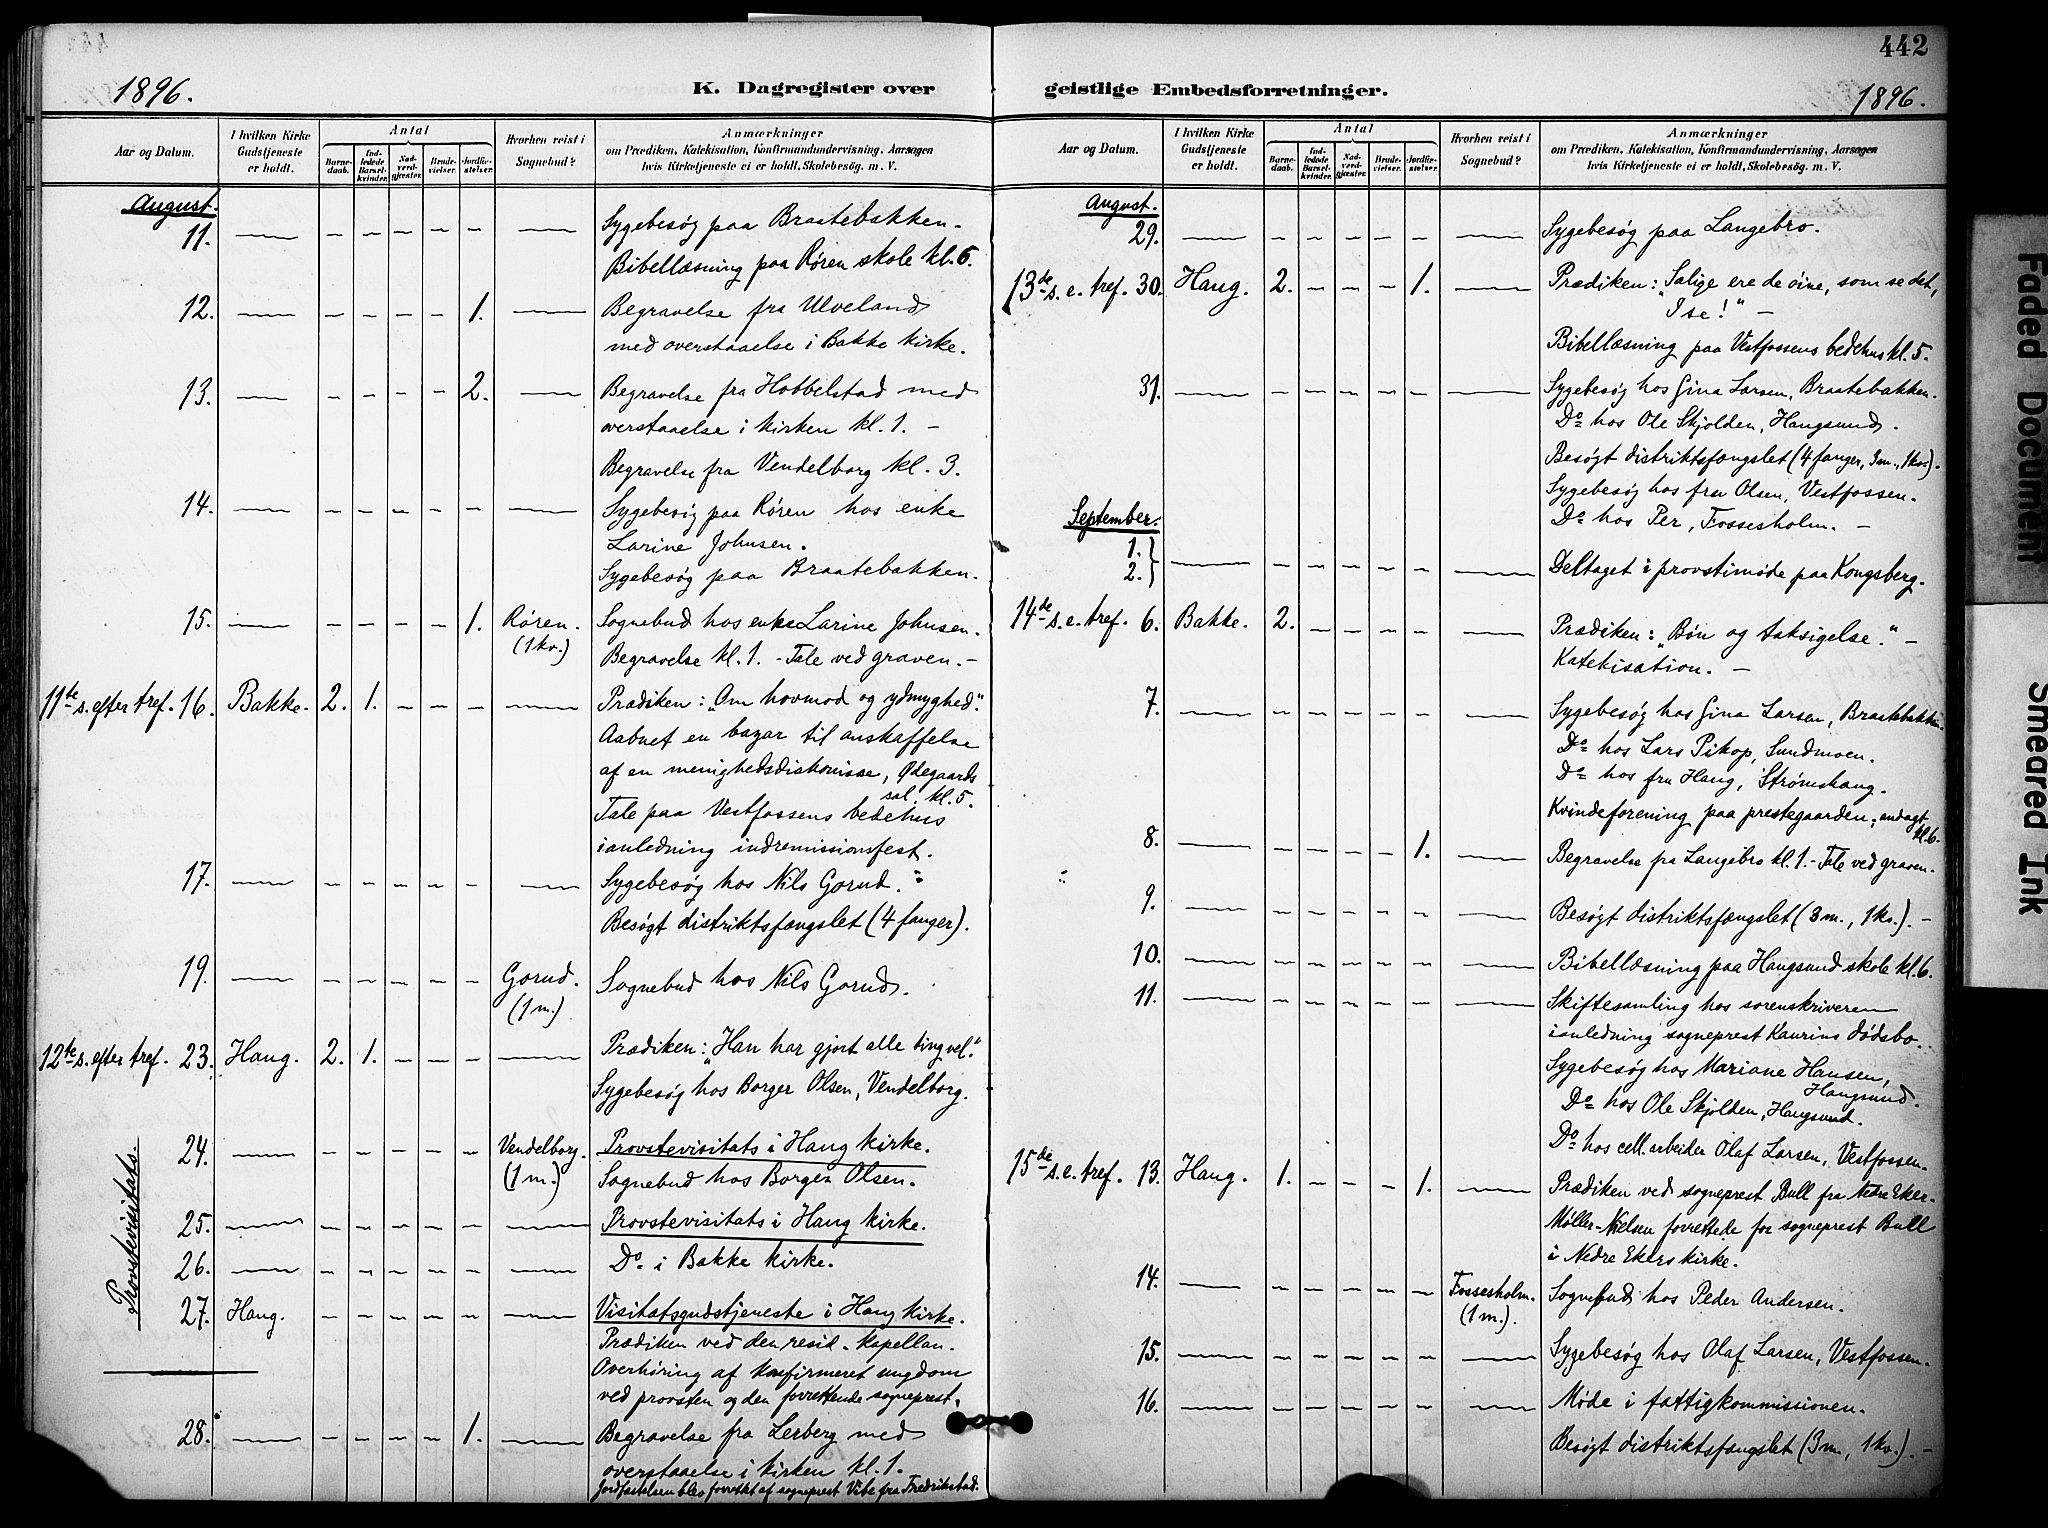 442
1896.
K. Dagregister over
geistlige Embedsforretninger.
1896.
Aar og Datum.
I hvilken Kirke Gudstjeneste er holdt.
Antal
Barnedaab.
Indledede Barselkvinder.
Nadverdgjæster.
Brudevielser.
Jordfæstelser.
Hvorhen reist i Sognebud?
Anmærkninger
om Prædiken, Katekisation, Konfirmandundervisning, Aarsagen
hvis Kirketjeneste ei er holdt, Skolebesøg. m. V.
August.
11. — — — — — — — Sygebesøg paa Braatebakken.
Bibellæsning paa Røren skole kl. 6.
12. — — — — — 1. — Begravelse fra Ulveland
med overstaaelse i Bakke kirke.
13. — — — — — 2. — Begravelse fra Hobbelstad med
overstaaelse i kirken kl. 1. —
Begravelse fra Vendelborg kl. 3.
14. — — — — — — — Sygebesøg paa Røren hos enke
Larine Johnsen.
Sygebesøg paa Braatebakken.
15. — — — — — 1. Røren. Sognebud hos enke Larine Johnsen.
(1 kv.) Begravelse kl. 1. - Tale ved graven. —
11te s. efter tref. 16. Bakke. 2. 1. — — — — Prædiken: „Om hovmod og ydmyghed".
Aabnet en bazar til anskaffelse
af en menighedsdiakonisse, Ødegaards
sal. kl. 5.
Tale paa Vestfossens bedehus
ianledning indremissionsfest.
17. — — — — — — — Sygebesøg hos Nils Gorud.
Besøgt distriktsfængslet (4 fanger).
19. — — — — — — Gorud. Sognebud hos Nils Gorud.
(1 m.)
12te s. efter tref. 23. Haug. 2. 1. — — — — Prædiken: „Han har gjort alle ting vel."
Sygebesøg hos Borger Olsen, Vendelborg.
Provstevisitats.
24. — — — — — — Vendelborg. Provstevisitats i Haug kirke.
(1 m.) Sognebud hos Borger Olsen.
25. — — — — — — — Provstevisitats i Haug kirke.
26. — — — — — — — Do i Bakke kirke.
27. Haug. — — — — — — Visitatsgudstjeneste i Haug kirke.
Prædiken ved den resid. kapellan.
Overhøring af konfirmeret ungdom
ved provsten og den forrettende sogneprest.
28. — — — — — 1. — Begravelse fra Lerberg med
overstaaelse i kirken kl. 1.
Jordfæstelsen blev forrettet af sogneprest Vibe fra Fredrikstad.
Aar og Datum.
I hvilken Kirke Gudstjeneste er holdt.
Antal
Barnedaab.
Indledede Barselkvinder.
Nadverdgjæster.
Brudevielser.
Jordfæstelser.
Hvorhen reist i Sognebud?
Anmærkninger
om Prædiken, Katekisation, Konfirmandundervisning, Aarsagen
hvis Kirketjeneste ei er holdt, Skolebesøg. m. V.
August.
29. — — — — — — — Sygebesøg paa Langebro.
13de s. e. tref. 30. Haug. 2. — — — 1. — Prædiken: „Salige ere de øine, som se det,
I se!" —
Bibellæsning paa Vestfossens bedehus kl. 5.
31. — — — — — — — Sygebesøg hos Gina Larsen, Braatebakken.
Do hos Ole Skjolden, Haugsund.
Besøgt distriktsfængslet (4 fanger, 3 m., 1 kv.).
Sygebesøg hos fru Olsen, Vestfossen.
Do hos Per, Fossesholm. —
September.
1. }
2. } — — — — — — — Deltaget i provstimøde paa Kongsberg.
14de s. e. tref. 6. Bakke. 2. — — — — — Prædiken: „Bøn og taksigelse." —
Katekisation. —
7. — — — — — — — Sygebesøg hos Gina Larsen, Braatebakken.
Do hos Lars Pikop, Sundmoen.
Do hos fru Haug, Strømshaug.
Kvindeforening paa prestegaarden; andagt
kl. 6.
8. — — — — — 1. — Begravelse fra Langebro kl. 1. - Tale ved graven.
9. — — — — — — — Besøgt distriktsfængslet (3 m., 1 kv.). —
10. — — — — — — — Bibellæsning paa Haugsund skole kl. 6.
11. — — — — — — — Skiftesamling hos sorenskriveren
ianledning sogneprest Kaurins dødsbo.
Sygebesøg hos Mariane Hansen,
Haugsund.
Do hos Ole Skjolden, Haugsund.
Do hos cell. arbeider Olaf Larsen, Vestfossen.
15de s. e. tref. 13. Haug. 1. — — — 1. — Prædiken ved sogneprest Bull fra Nedre Eker.
Møller-Nielsen forrettede for sogneprest Bull
i Nedre Ekers kirke.
14. — — — — — — Fossesholm. Sognebud hos Peder Andersen.
(1 m.).
15. — — — — — — — Sygebesøg hos Olaf Larsen, Vestfossen.
16. — — — — — — — Møde i fattigkommissionen.
Besøgt distriktsfængslet (3 m., 1 kv.). —
Faded Document
Smeared Ink